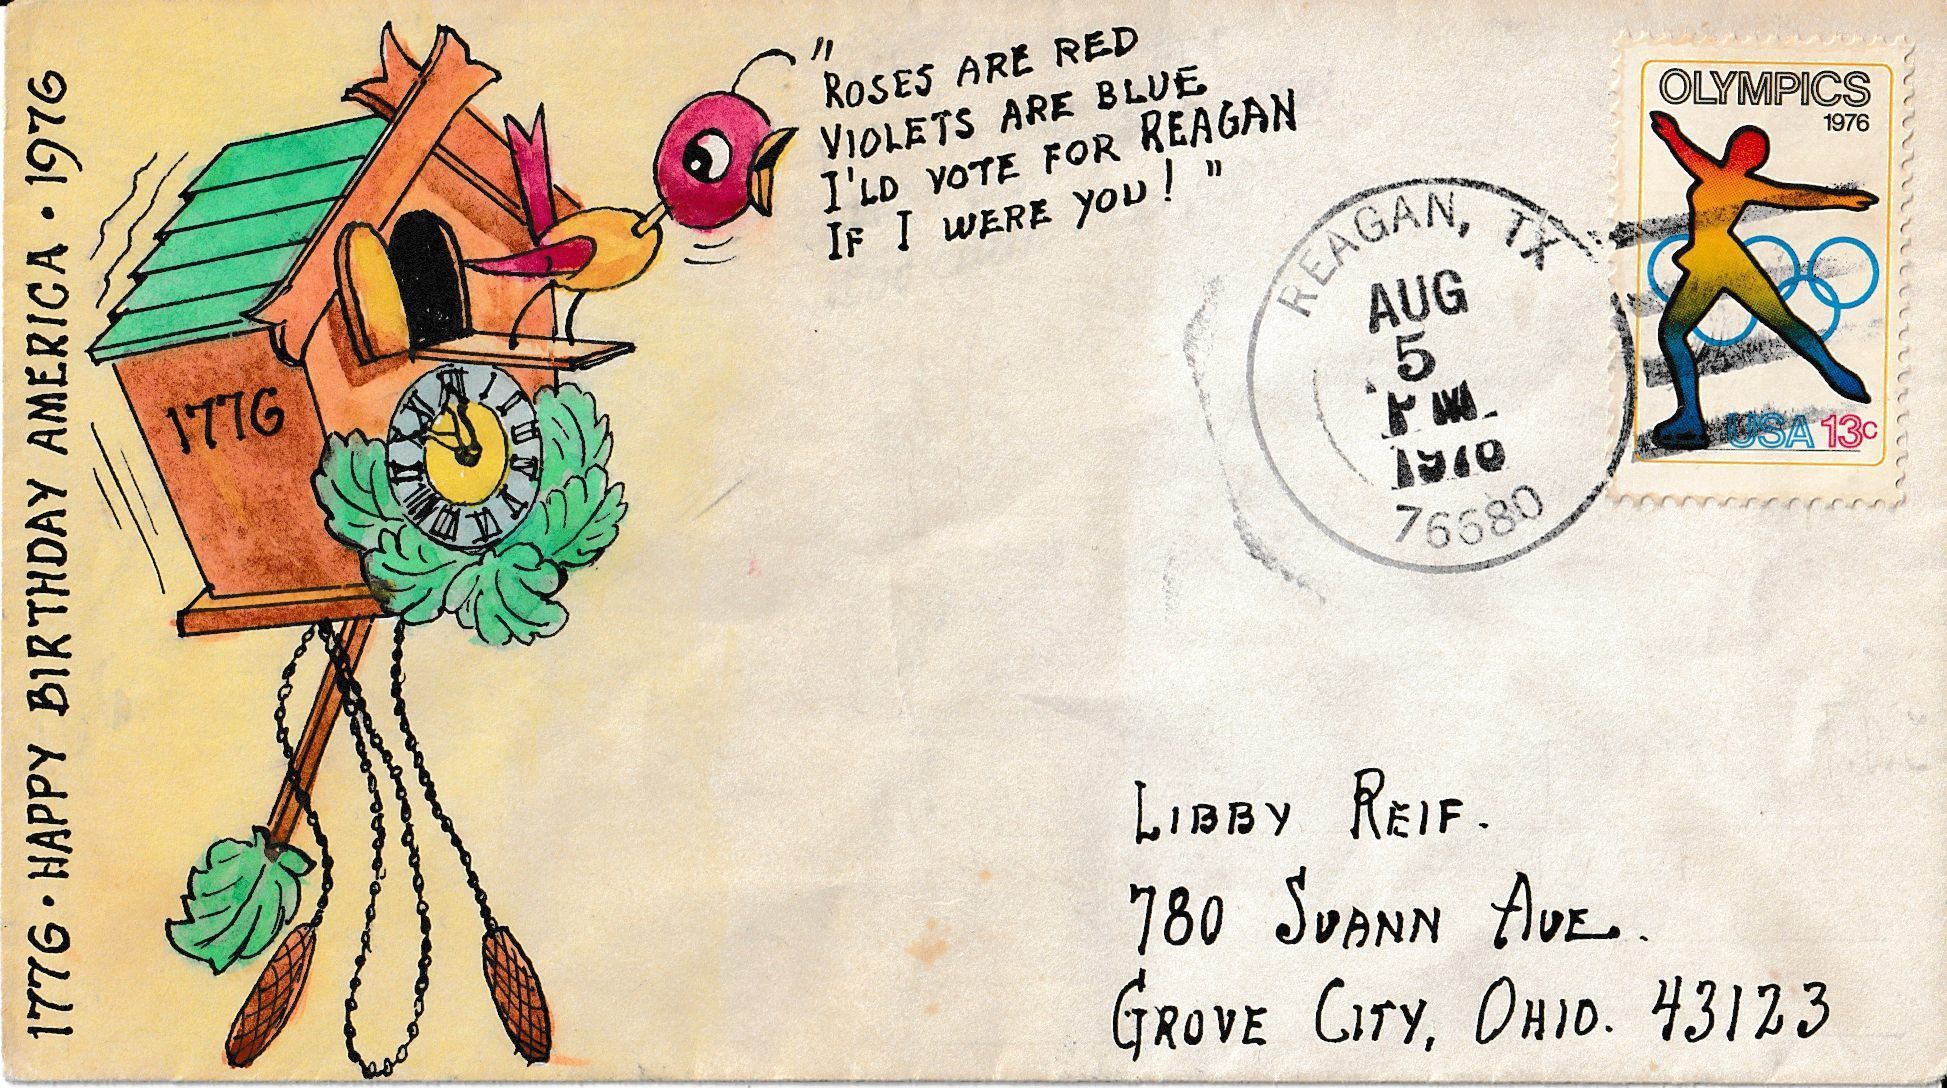 1776 · HAPPY BIRTHDAY AMERICA · 1976
1776
"
ROSES ARE RED
VIOLETS ARE BLUE
I'LD VOTE FOR REAGAN
IF I WERE YOU! "
REAGAN, TX
AUG
5
PM
1976
76680
OLYMPICS
1976
USA 13c
LIBBY REIF.
780 SUANN AVE.
GROVE CITY, OHIO. 43123